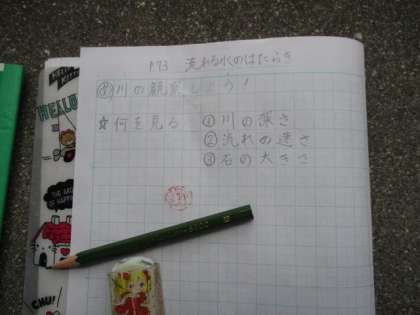 P.73 流れる水のはたらき
川の観察しよう!
☆何を見る ①川の深さ
②流れの速さ
③石の大きさ
HELLO
THE ART OF HAPPY
CHU!